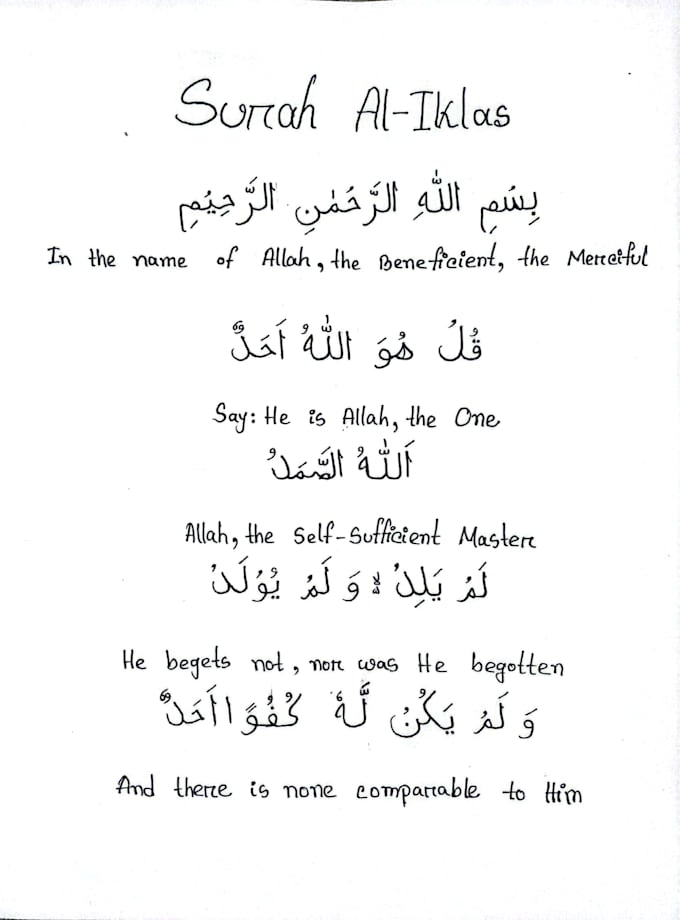 Surah Al-Iklas
بِسْمِ اللّٰهِ الرَّحْمٰنِ الرَّحِيْمِ
In the name of Allah, the Beneficient, the Merciful
قُلْ هُوَ اللّٰهُ اَحَدٌ
Say: He is Allah, the One
اَللّٰهُ الصَّمَدُ
Allah, the Self-Sufficient Master
لَمْ يَلِدْ ۙ وَ لَمْ يُوْلَدْ
He begets not, nor was He begotten
وَ لَمْ يَكُنْ لَّهٗ كُفُوًا اَحَدٌ
And there is none comparable to Him